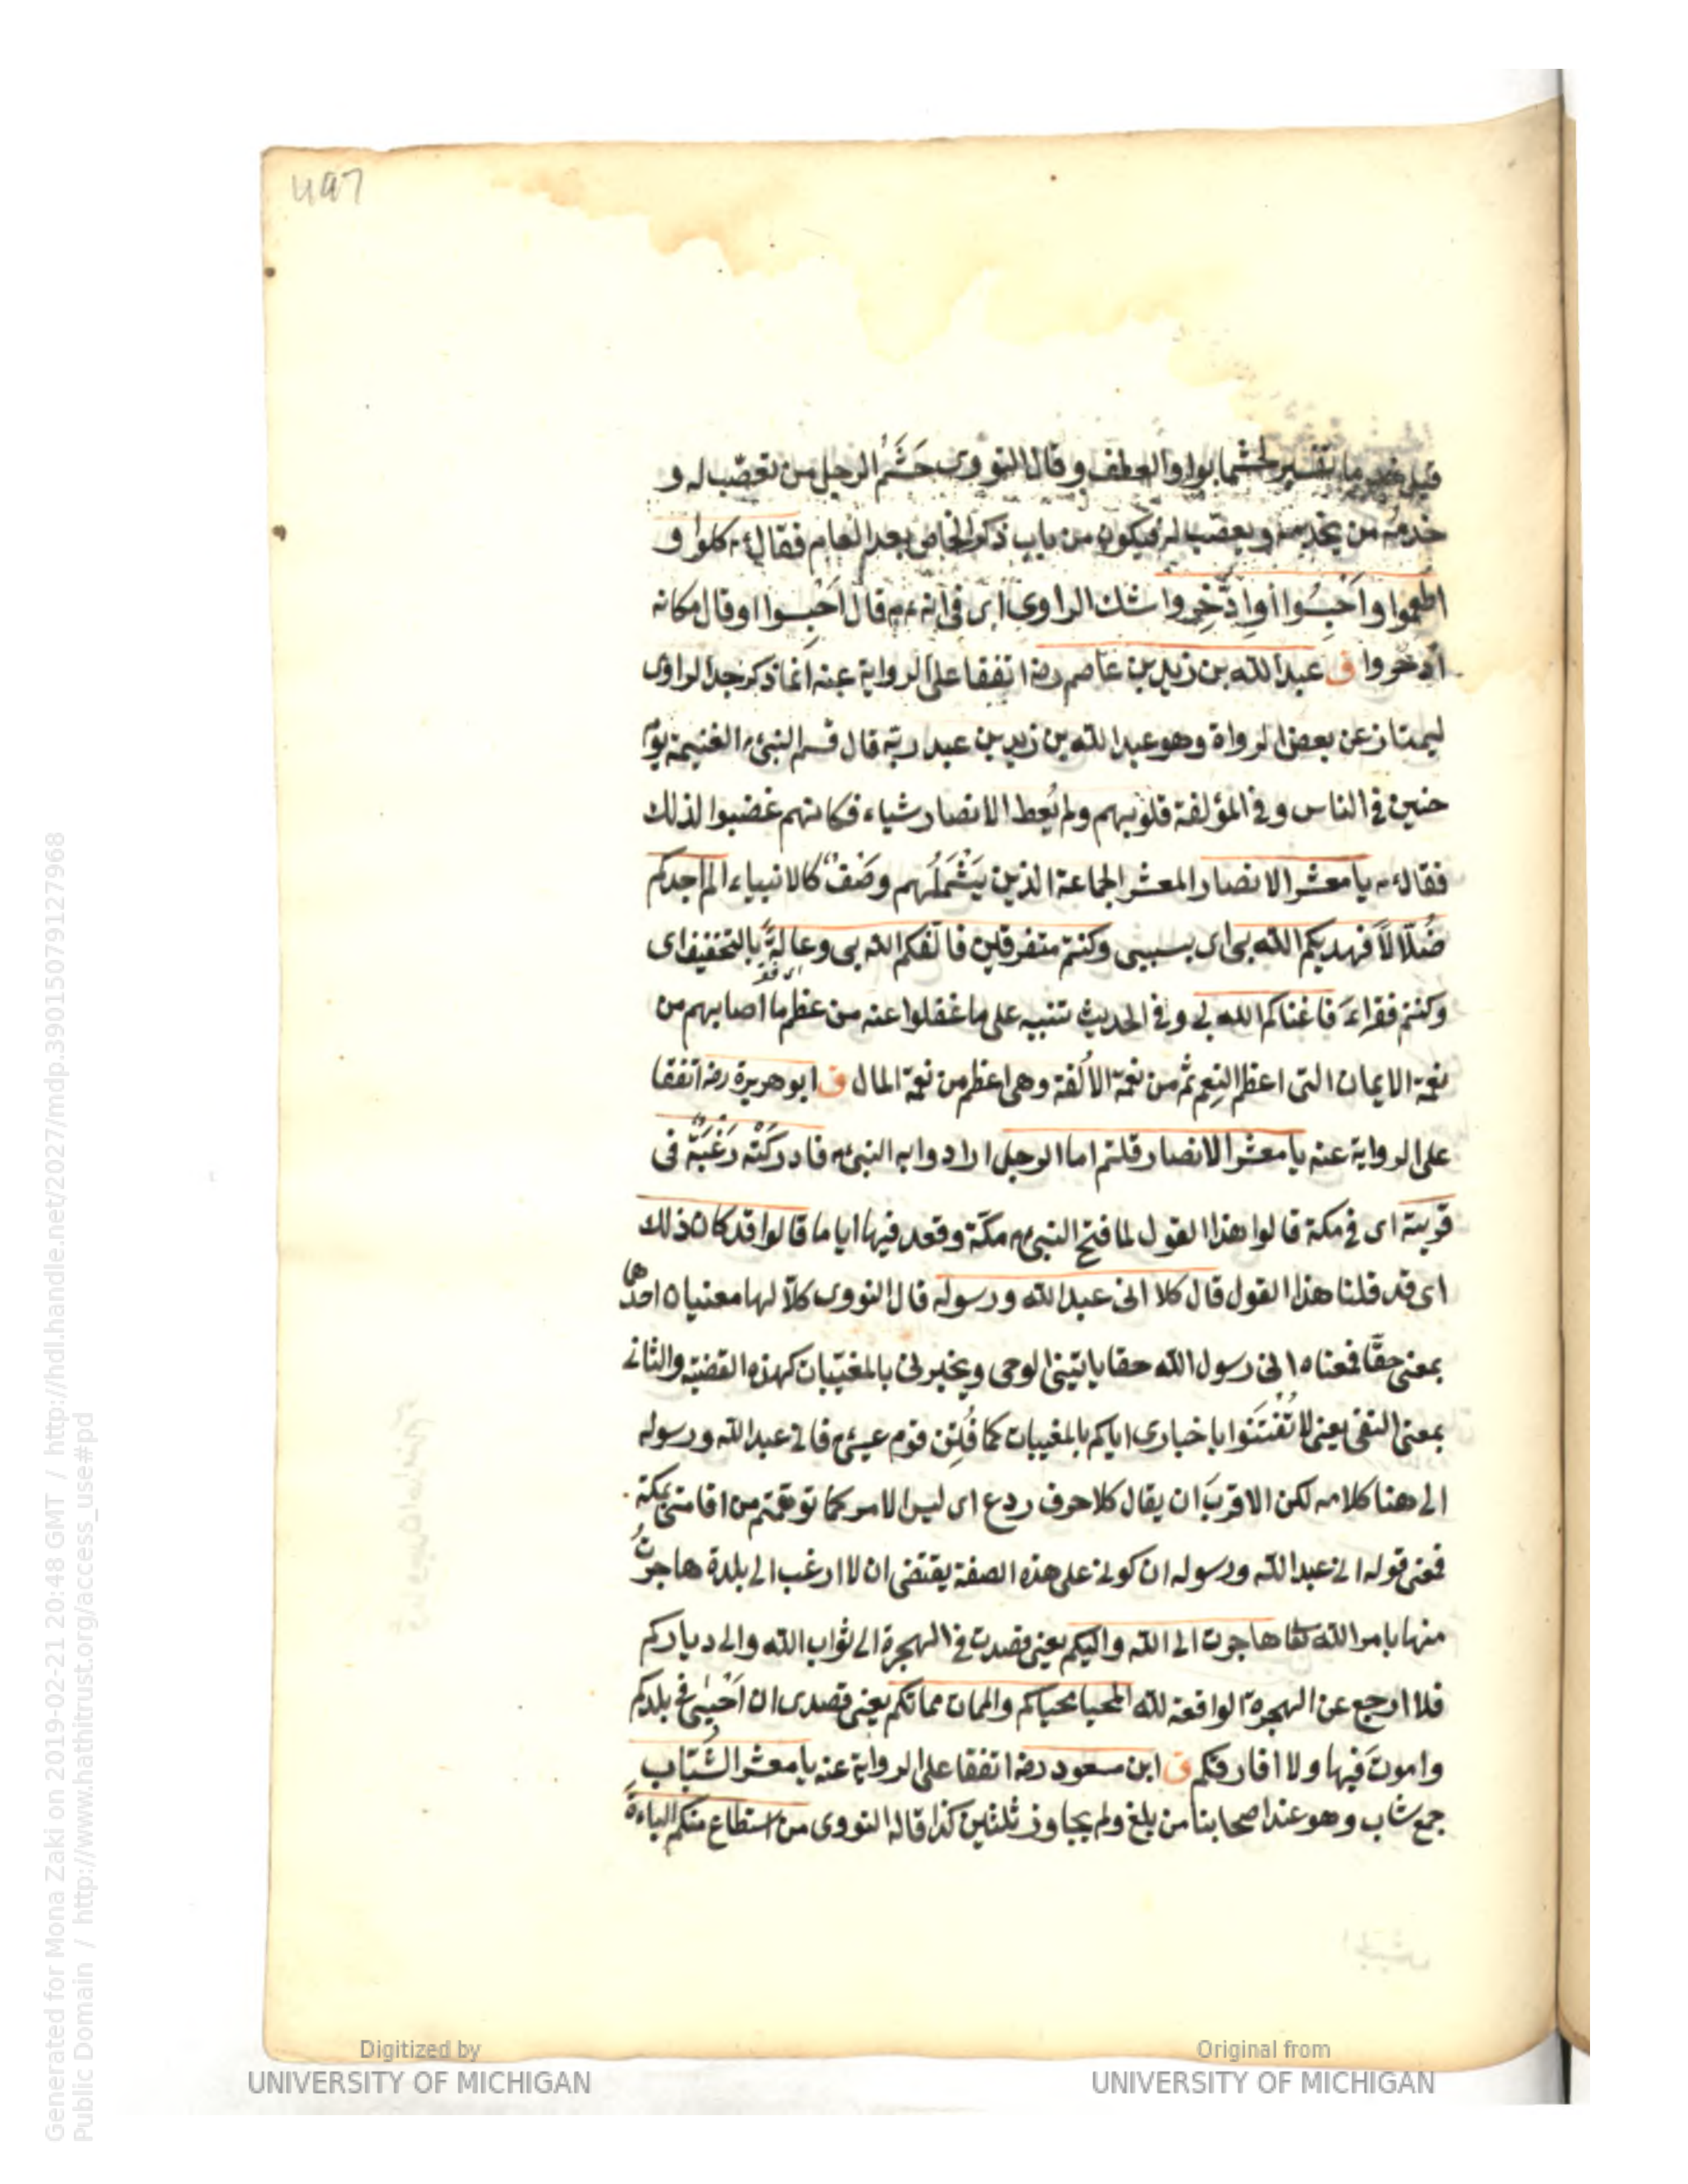 497
قيل خدما تفسير لحشما بواو العطف وقال النووى حَشَمُ الرجل من تعصّب له و
خدمه من يخدمه و يعصّب له فيكون من باب ذكر الخاص بعد العام فقال ءم كلوا و
اطعموا واَحْبِسُوا أوادّخِروا شك الراوى اى فى انه ءم قال اَحْبِسوا اوقال مكانه
ادخروا ق عبد الله بن زيد بن عاصم رضه اتفقا على الرواية عنه انما ذكر جد الراوى
ليمتاز عن بعض الرواة وهو عبد الله بن زيد بن عبد ربّه قال قسم النبىءم الغنيمة يوم
حنين فى الناس وفى المؤلفة قلوبهم ولم يُعط الانصار شياء فكانهم غضبوا لذلك
فقال ءم يا معشر الانصار المعشر الجماعة الذين يَشْمَلُهم وصْفٌ كالانبياء الم اجدكم
ضُلّالاً فهديكم الله بى اى بسببى وكنتم متفرقين فالّفكم الله بى وعالةً بالتخفيف اى
وكنتم فقراءَ فاغناكم الله بى وفى الحديث تنبيه على ما غفلوا عنه من عظم ما اصابهم من
نعمة الايمان التى اعظم النِعم ثم من نعمة الاُلفة وهى اعظم من نعمة المال ق ابو هريرة رضه اتفقا
على الرواية عنه يا معشر الانصار قلتم اما الرجل ارادوا به النبىءم فادركَتْه رَغْبَةٌ فى
قريته اى فى مكة قالوا هذا القول لما فتح النبىءم مكّة وقعد فيها اياما قالوا قد كان ذلك
اى قد قلنا هذا القول قال كلا انى عبد الله ورسوله قال النووى كلّا لها معنيان احدها
بمعنى حقّا فمعناه انى رسول الله حقا ياتينى الوحى ويخبرنى بالمغيّبات كهذه القضية والثانى
بمعنى النفى يعنى لا تُفْتَتَنُوا باخبارى اياكم بالمغيبات كما فُتِن قوم عيسىءم فانى عبد الله ورسوله
الى هنا كلامه لكن الاقربَ ان يقال كلا حرف ردع اى ليس الامر كما توهمتم من اقامتى بمكة
فمعنى قوله انى عبد الله ورسوله ان كونى على هذه الصفة يقتضى ان لا ارغب الى بلدة هاجرتُ
منها بامر الله تعا هاجرت الى الله واليكم يعنى قصدت فى الهجرة الى ثواب الله والى دياركم
فلا ارجع عن الهجرة الواقعة لله المحيا محياكم والممات مماتكم يعنى قصدى ان اَحْيٰى فى بلدكم
واموتَ فيها ولا افارقكم ق ابن مسعود رضه اتفقا على الرواية عنه يا معشر الشُّبّاب
جمع شاب وهو عند اصحابنا من بلغ ولم يجاوز ثلثين كذا قاله النووى من استطاع منكم الباءةَ
Generated for Mona Zaki on 2019-02-21 20:48 GMT / http://hdl.handle.net/2027/mdp.39015079127968
Public Domain / http://www.hathitrust.org/access_use#pd
Digitized by
UNIVERSITY OF MICHIGAN
Original from
UNIVERSITY OF MICHIGAN